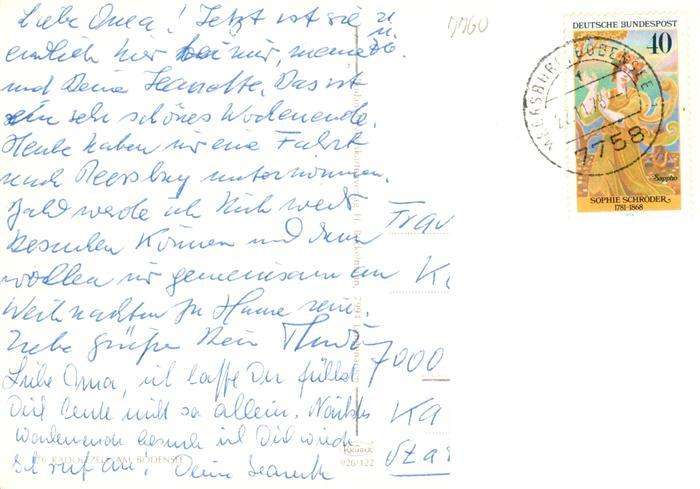 Liebe Oma! Jetzt ist sie
endlich hier bei mir, meine
und Deine Jeanette. Das ist
ein sehr schönes Wochenende.
Heute haben wir eine Fahrt
nach Meersburg unternommen.
Bald werde ich Dich
besuchen können und dann
wollen wir gemeinsam an
Weihnachten zu Hause sein.
Liebe Grüße Dein
Liebe Oma, ich hoffe Du fühlst
Dich heute nicht so allein. Nächstes
Wochenende besuche ich Dich wieder
Ich ruf an! Deine Jeanette
RADOLFZELL AM BODENSEE
926/122
7000
Ka
DEUTSCHE BUNDESPOST
40
Sappho
SOPHIE SCHRÖDER
1781-1868
MEERSBURG, BODENSEE
7758